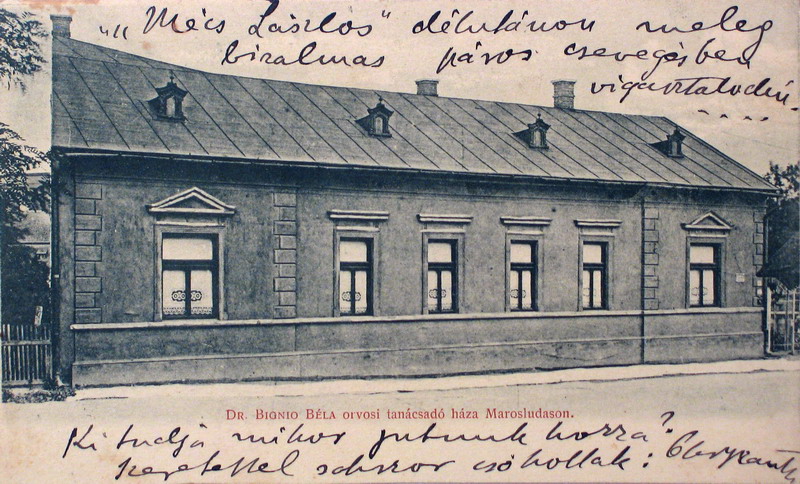 „Mécs László" délutánon meleg
bizalmas páros csevegésben
vigasztalódni....
DR. BIGNIO BÉLA orvosi tanácsadó háza Marosludason.
Ki tudja mikor jutunk hozzá?
Szeretettel sokszor csókollak: